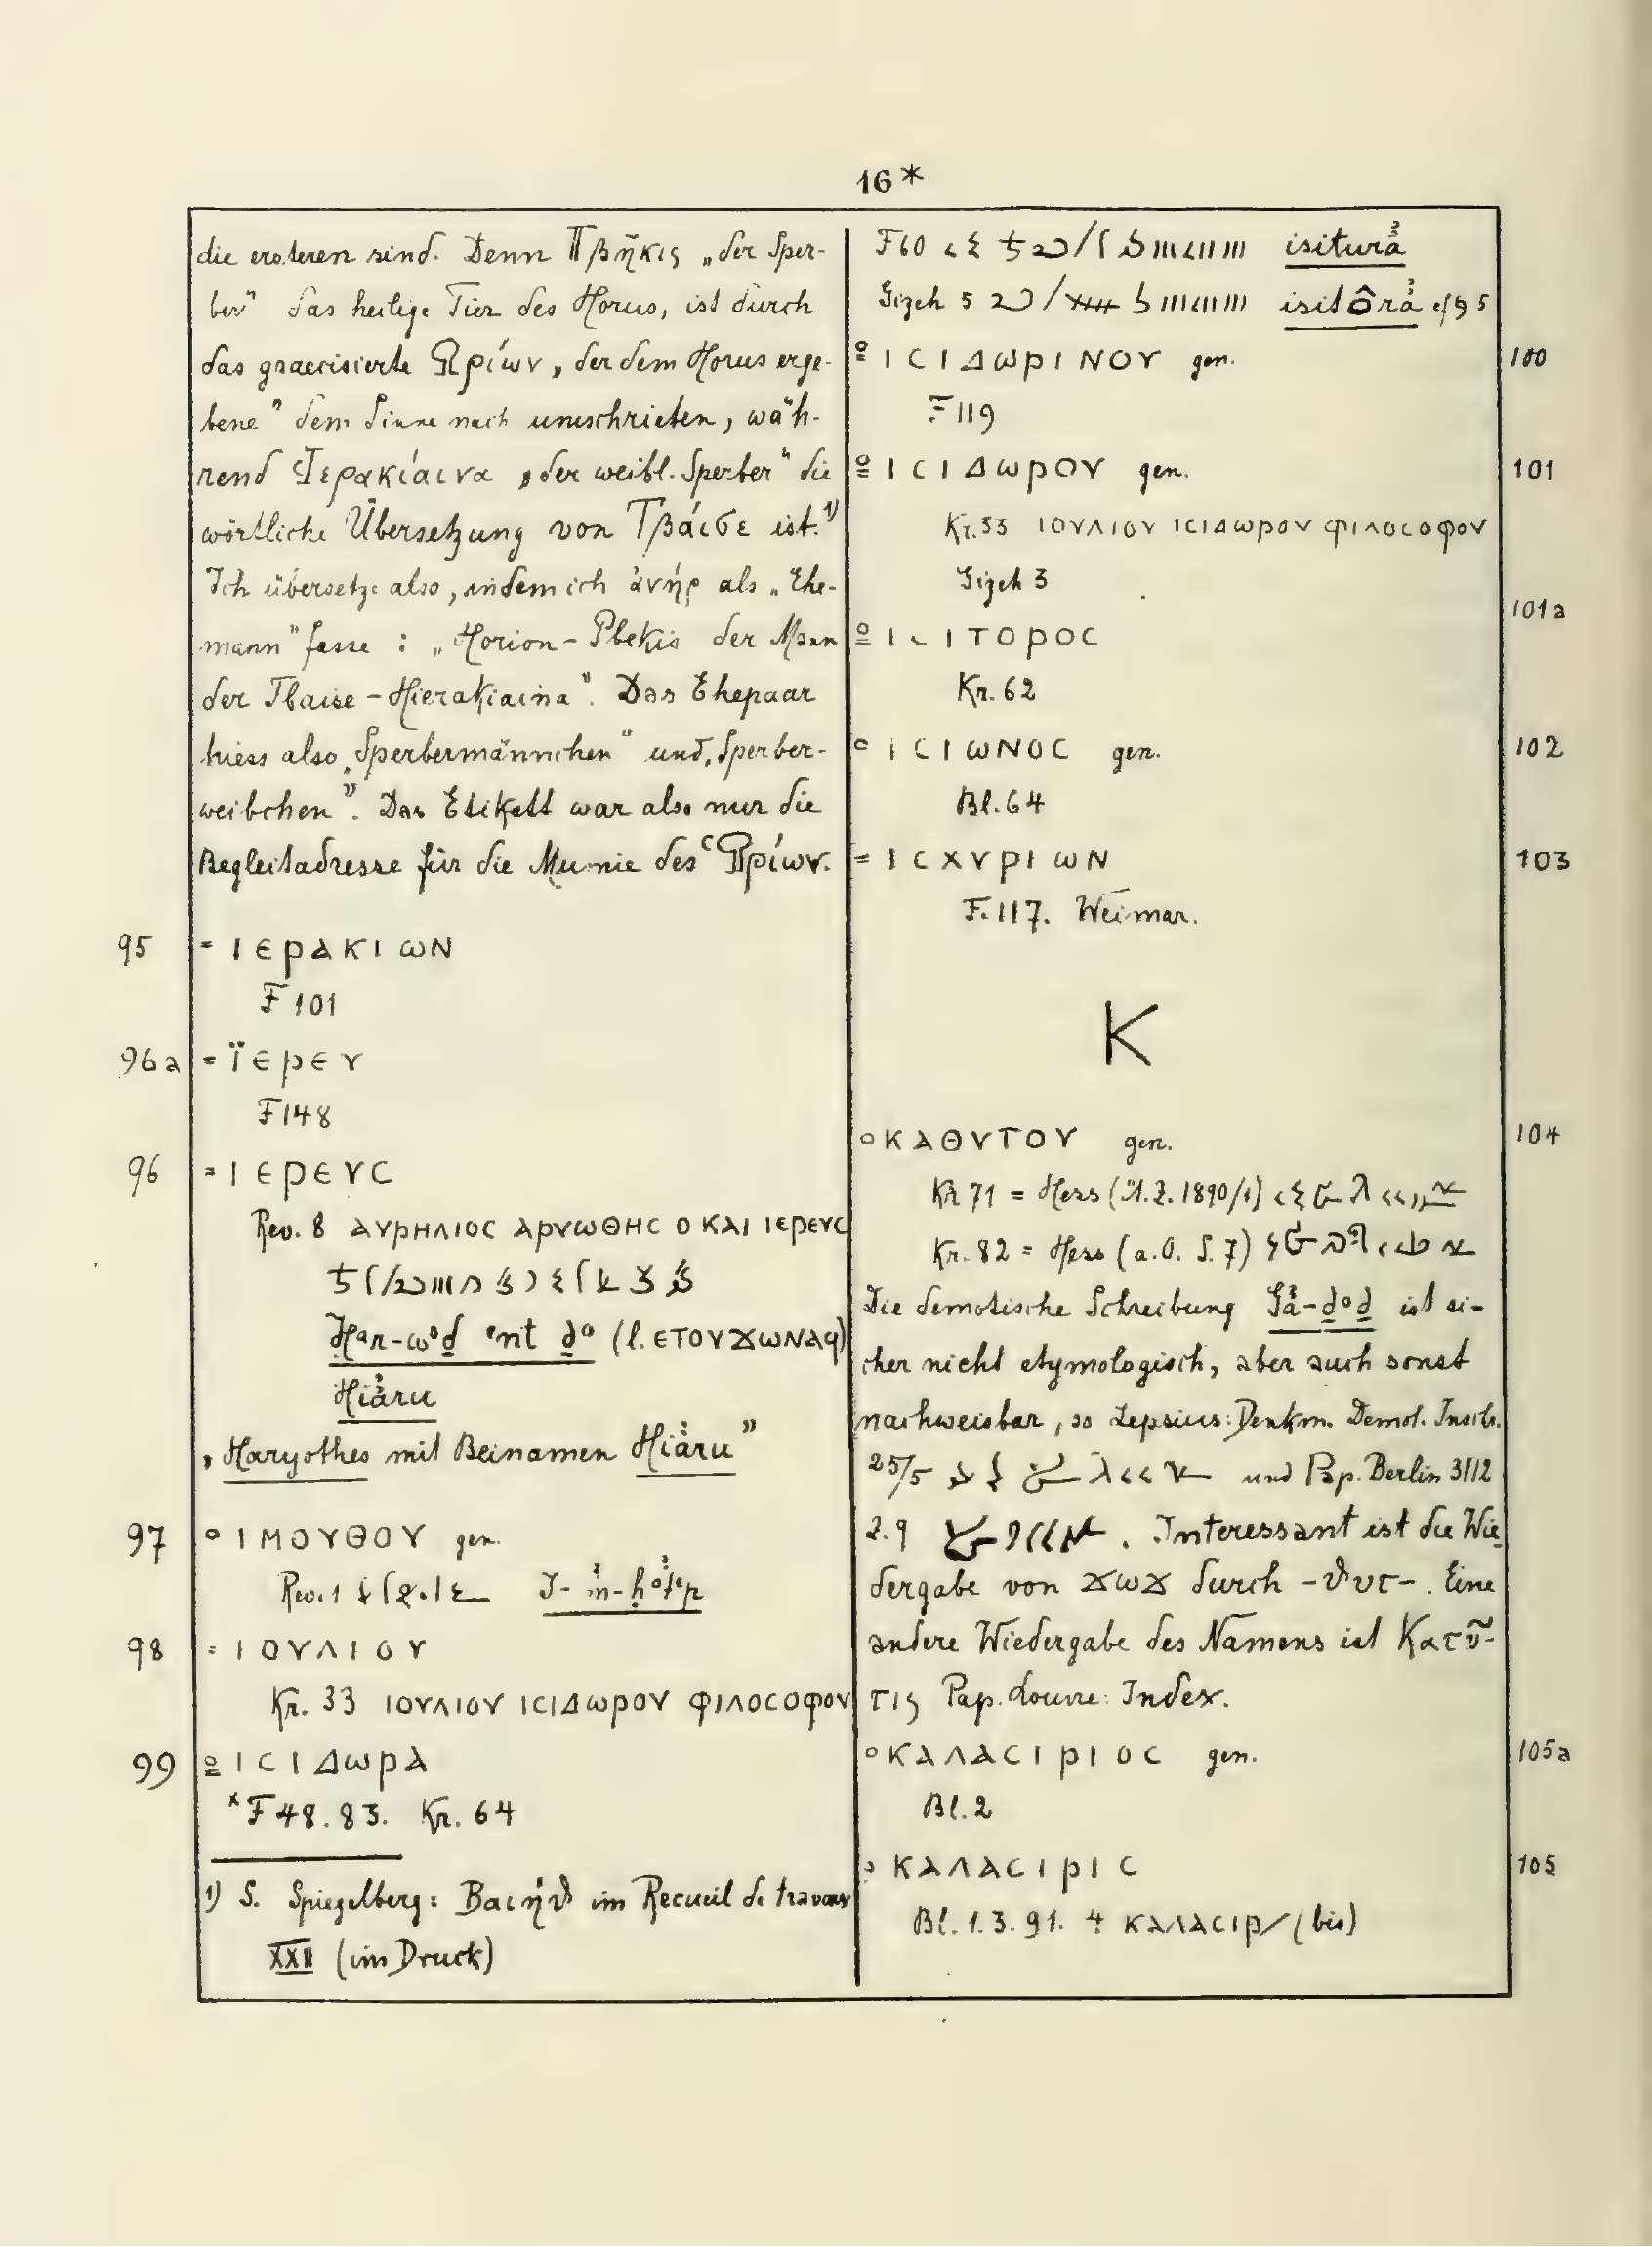 16*
die ersteren sind. Denn Πβῆκις „der Sper-
ber" das heilige Tier des Horus, ist durch
das graecisierte Ὡρίων „der dem Horus erge-
bene" dem Sinne nach umschrieben, wäh-
rend Ἱερακίαινα „der weibl. Sperber" die
wörtliche Übersetzung von Τβάισε ist.¹⁾
Ich übersetze also, indem ich ἀνήρ als „Ehe-
mann" fasse: „Horion-Pbekis der Mann
der Tbaise-Hierakiaina". Das Ehepaar
hiess also „Sperbermännchen" und „Sperber-
weibchen". Das Etikett war also nur die
Begleitadresse für die Mumie des Ὡρίων.
95 = ΙΕΡΑΚΙΩΝ
F 101
96a = ΪΕΡΕΥ
F 148
96 = ΙΕΡΕΥC
Rev. 8 ΑΥΡΗΛΙΟC ΑΡΥΩΘΗC Ο ΚΑΙ ΙΕΡΕΥC
Ḥar-wᵒḏ ent ḏᵒ (l. ΕΤΟΥϪΩΝΑϤ)
Hiảru
„Haryothes mit Beinamen Hiảru"
97 ° ΙΜΟΥΘΟΥ gen.
Rev. 1 I-m-ḥotep
98 = ΙΟΥΛΙΟΥ
Kr. 33 ΙΟΥΛΙΟΥ ΙCΙΔΩΡΟΥ ΦΙΛΟCΟΦΟΥ
99 ≗ ΙCΙΔΩΡΑ
ˣF 48. 83. Kr. 64
1) S. Spiegelberg: Βαιήθ im Recueil de travaux
XXII (im Druck)
F 60 isiturả
Gizeh 5 isitôrả
≗ ΙCΙΔΩΡΙΝΟΥ gen. 100
F 119
≗ ΙCΙΔΩΡΟΥ gen. 101
Kr. 33 ΙΟΥΛΙΟΥ ΙCΙΔΩΡΟΥ ΦΙΛΟCΟΦΟΥ
Gizeh 3
≗ ΙCΙΤΟΡΟC 101a
Kr. 62
° ΙCΙΩΝΟC gen. 102
Bl. 64
= ΙCΧΥΡΙΩΝ 103
F. 117. Weimar.
K
° ΚΑΘΥΤΟΥ gen. 104
Kr 71 = Hess (Ä. Z. 1890/1)
Kr. 82 = Hess (a. O. S. 7)
Die demotische Schreibung Gả-ḏᵒḏ ist si-
cher nicht etymologisch, aber auch sonst
nachweisbar, so Lepsius: Denkm. Demot. Inschr.
25/5 und Pap. Berlin 3112
2.9 . Interessant ist die Wie
dergabe von ϪΩϪ durch -θυτ-. Eine
andere Wiedergabe des Namens ist Κατῦ-
τις Pap. Louvre: Index.
° ΚΑΛΑCΙΡΙΟC gen. 105a
Bl. 2
° ΚΑΛΑCΙΡΙC 105
Bl. 1. 3. 91. 4 ΚΑΛΑCΙΡ/ (bis)